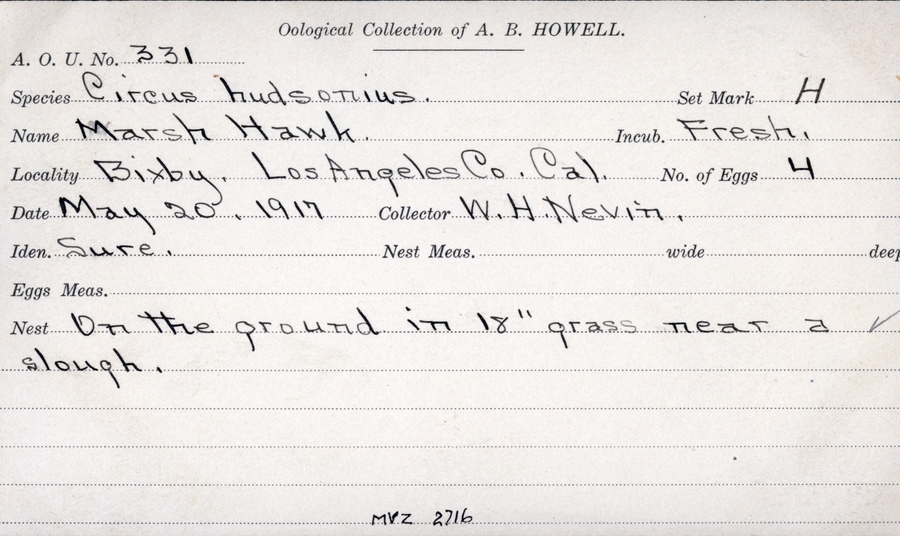 Oological Collection of A. B. HOWELL.
A. O. U. No. 331
Species Circus hudsonius. Set Mark H
Name Marsh Hawk. Incub. Fresh.
Locality Bixby. Los Angeles Co. Cal. No. of Eggs 4
Date May 20, 1917 Collector W. H. Nevin.
Iden. Sure. Nest Meas. wide deep
Eggs Meas.
Nest On the ground in 18" grass near a ✓
slough.
MVZ 2716